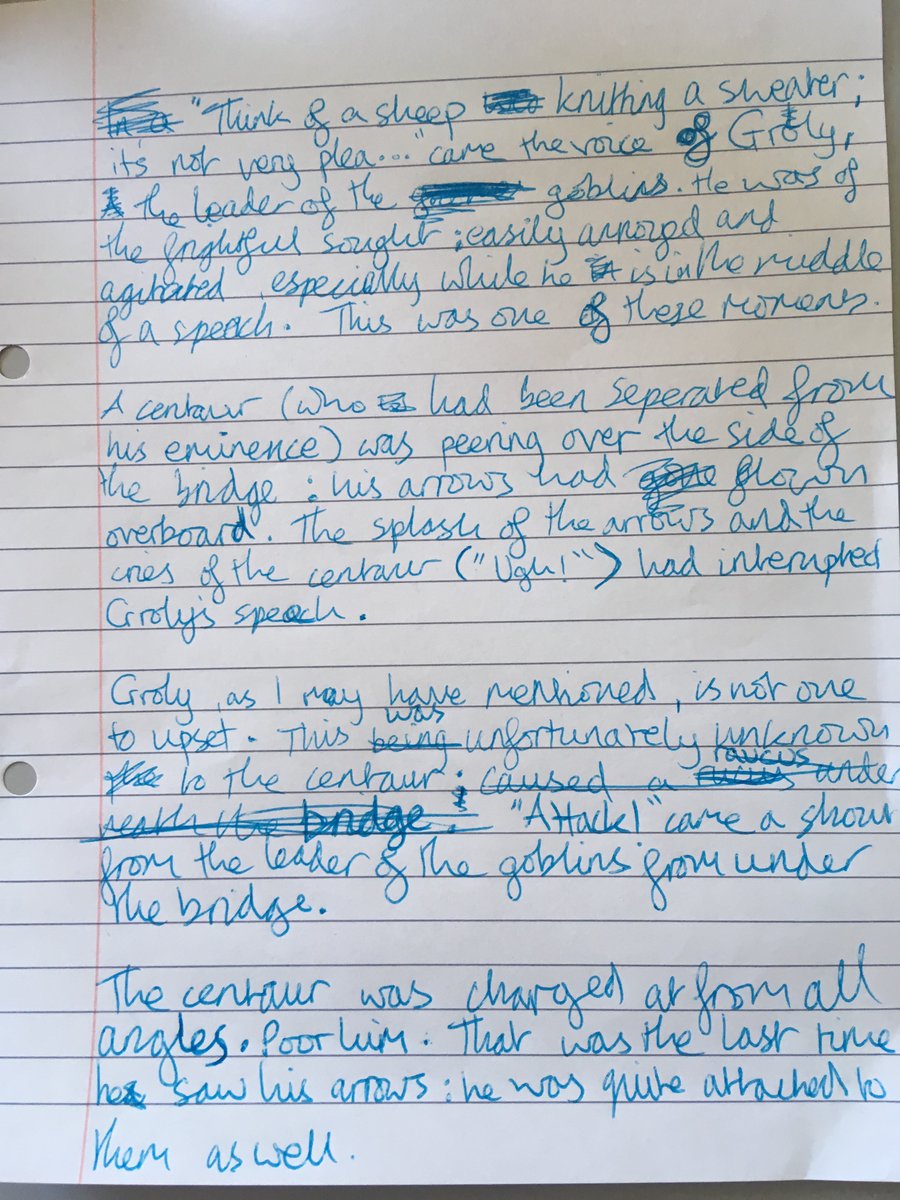 "Think of a sheep knitting a sweater;
it's not very plea..." came the voice of Groly,
the leader of the goblins. He was of
the frightful sought; easily annoyed and
agitated, especially while he is in the middle
of a speech. This was one of these moments.
A centaur (who had been seperated from
his eminence) was peering over the side of
the bridge: his arrows had flown
overboard. The splash of the arrows and the
cries of the centaur ("Ugh!") had interrupted
Groly's speech.
Groly, as I may have mentioned, is not one
to upset. This was unfortunately unknown
to the centaur; caused a raucus under
neath the bridge. "Attack!" came a shout
from the leader of the goblins from under
the bridge.
The centaur was charged at from all
angles. Poor him. That was the last time
he saw his arrows: he was quite attached to
them as well.